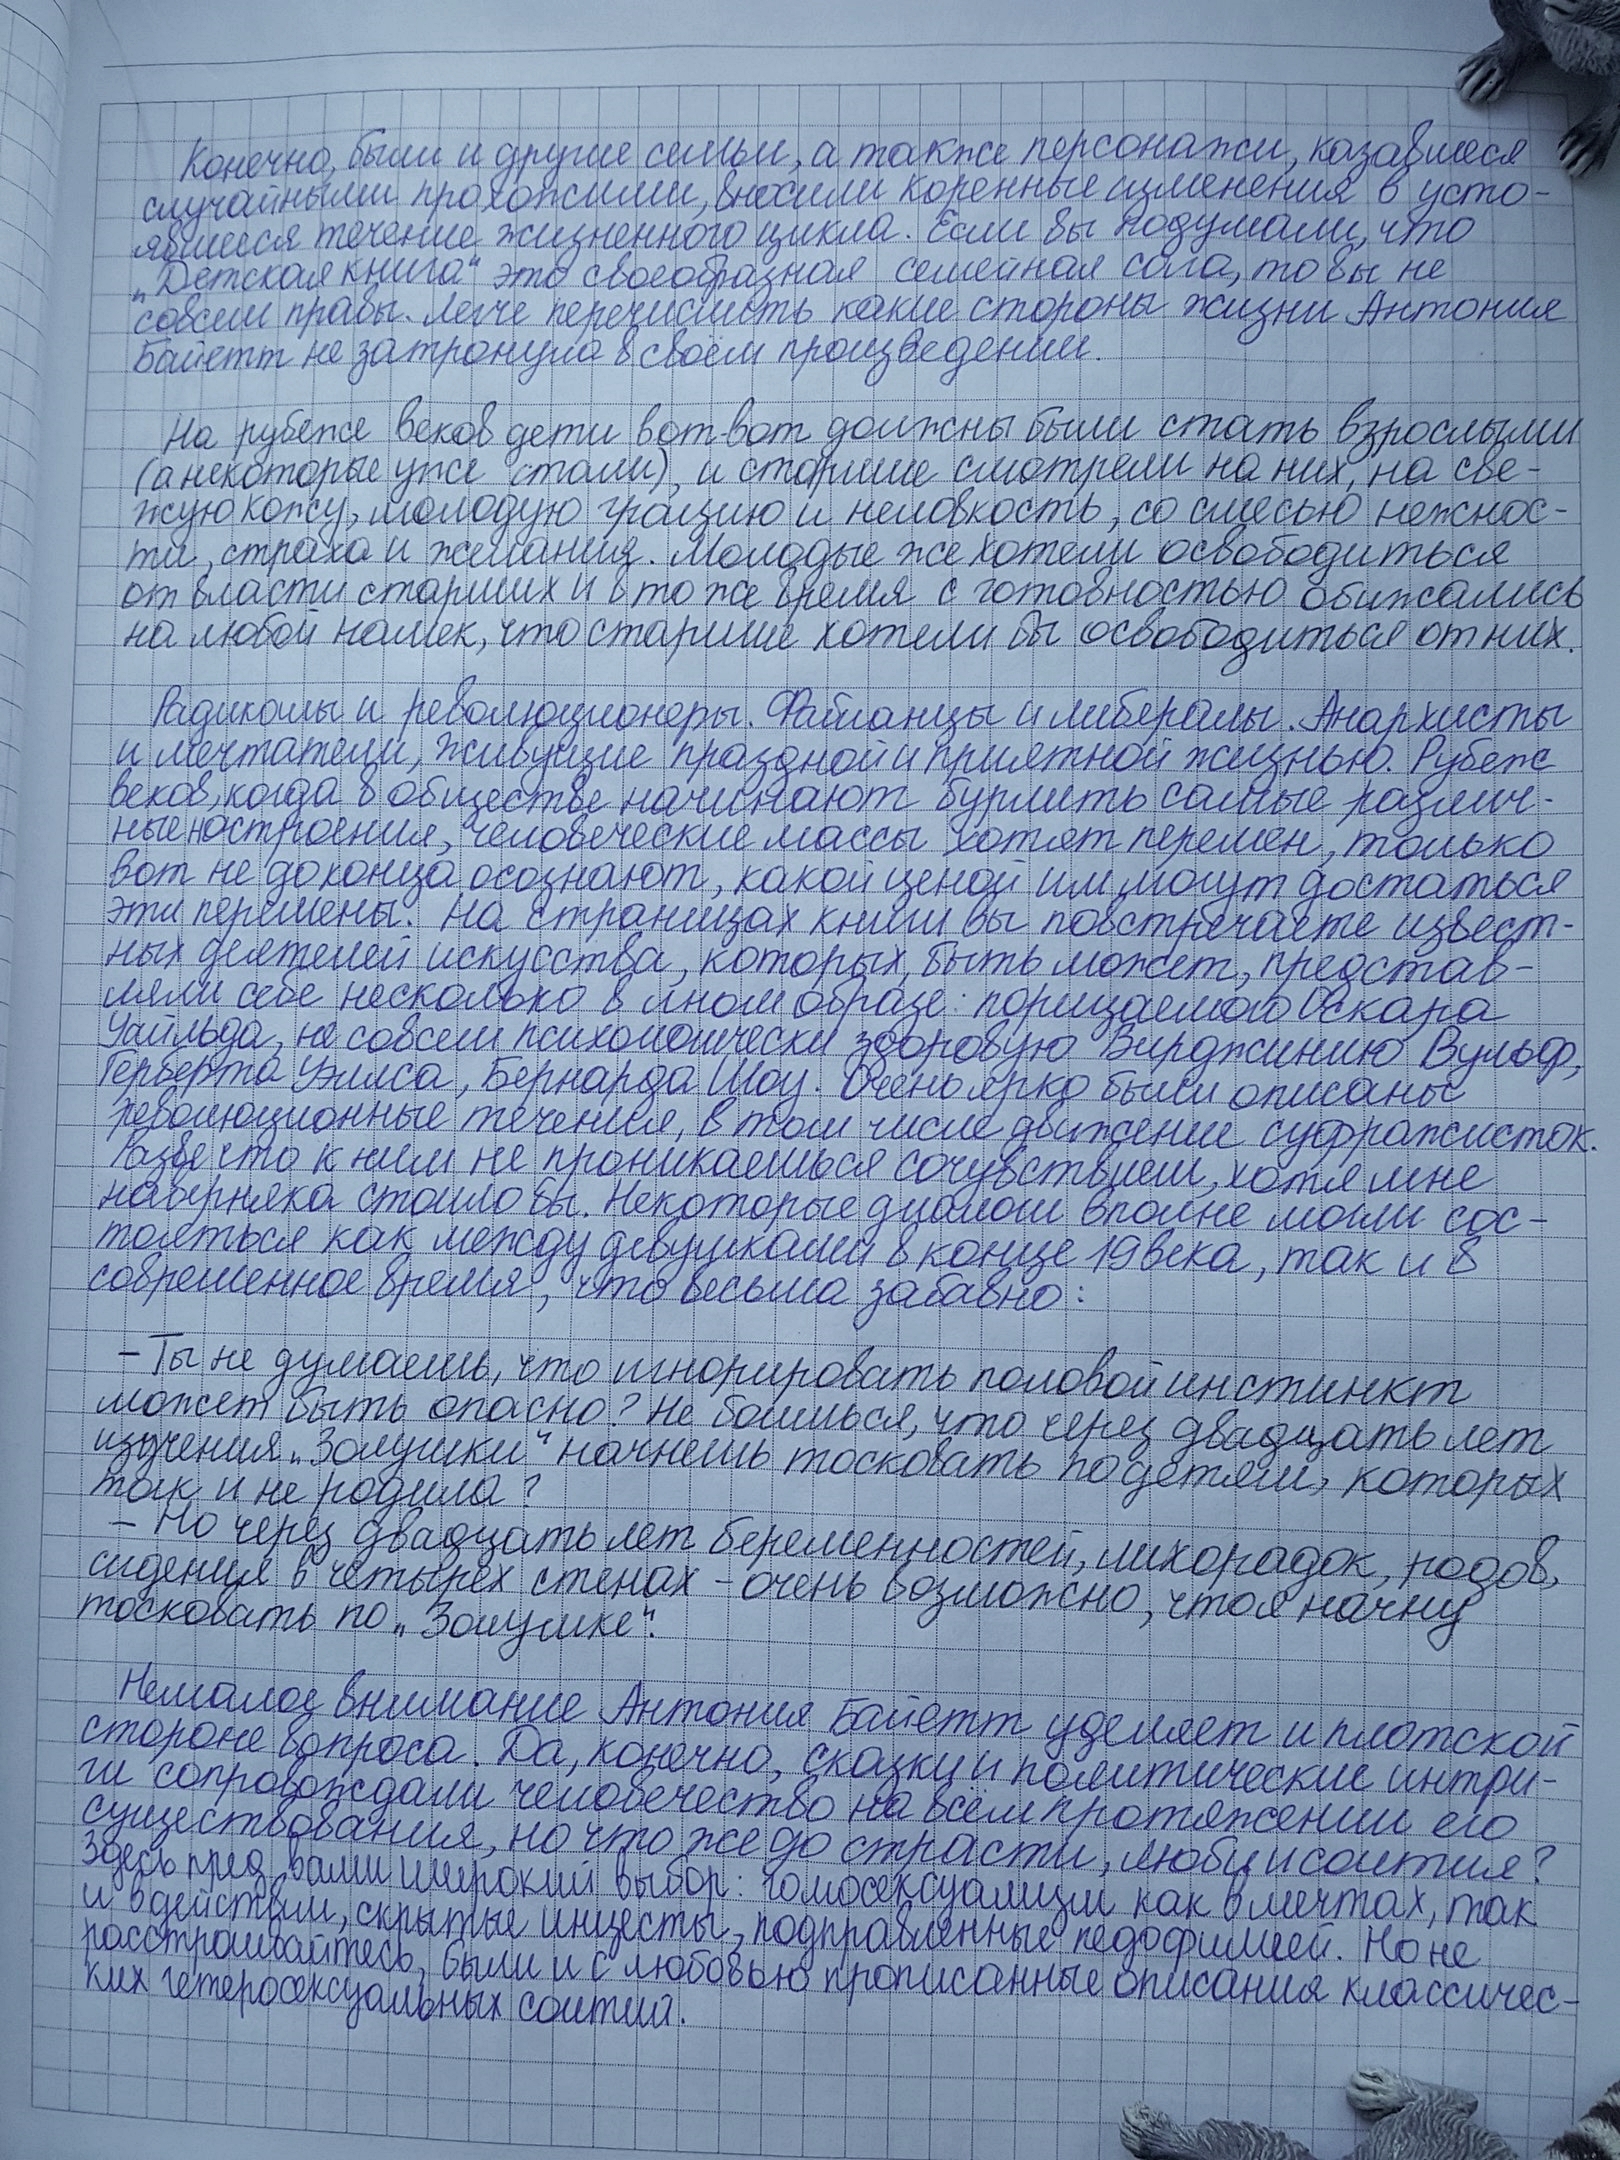 Конечно, были и другие семьи, а также персонажи, казавшиеся
случайными прохожими, вносили коренные изменения в усто-
явшееся течение жизненного цикла. Если вы подумали, что
„Детская книга“ это своеобразная семейная сага, то вы не
совсем правы. Легче перечислить какие стороны жизни Антония
Байетт не затронула в своём произведении.
На рубеже веков дети вот-вот должны были стать взрослыми
(а некоторые уже стали), и старшие смотрели на них, на све-
жую кожу, молодую грацию и неловкость, со смесью нежнос-
ти, страха и желания. Молодые же хотели освободиться
от власти старших и в то же время с готовностью обижались
на любой намек, что старшие хотели бы освободиться от них.
Радикалы и революционеры. Фабианцы и либералы. Анархисты
и мечтатели, живущие праздной и приятной жизнью. Рубеж
веков, когда в обществе начинают бурлить самые различ-
ные настроения, человеческие массы хотят перемен, только
вот не до конца осознают, какой ценой им могут достаться
эти перемены. На страницах книги вы повстречаете извест-
ных деятелей искусства, которых, быть может, представ-
ляли себе несколько в ином образе: порицаемого Оскара
Уайльда, не совсем психологически здоровую Вирджинию Вульф,
Герберта Уэллса, Бернарда Шоу. Очень ярко были описаны
революционные течения, в том числе движение суфражисток.
Разве что к ним не проникаешься сочувствием, хотя мне
наверняка стоило бы. Некоторые диалоги вполне могли сос-
тояться как между девушками в конце 19 века, так и в
современное время, что весьма забавно:
– Ты не думаешь, что игнорировать половой инстинкт
может быть опасно? Не боишься, что через двадцать лет
изучения „Золушки“ начнешь тосковать по детям, которых
так и не родила?
– Но через двадцать лет беременностей, лихорадок, родов,
сидения в четырех стенах – очень возможно, что я начну
тосковать по „Золушке“.
Немалое внимание Антония Байетт уделяет и плотской
стороне вопроса. Да, конечно, сказки и политические интри-
ги сопровождали человечество на всём протяжении его
существования, но что же до страсти, любви и соития?
Здесь пред вами широкий выбор: гомосексуализм как в мечтах, так
и в действии, скрытые инцесты, подправленные педофилией. Но не
расстраивайтесь, были и с любовью прописанные описания классичес-
ких гетеросексуальных соитий.